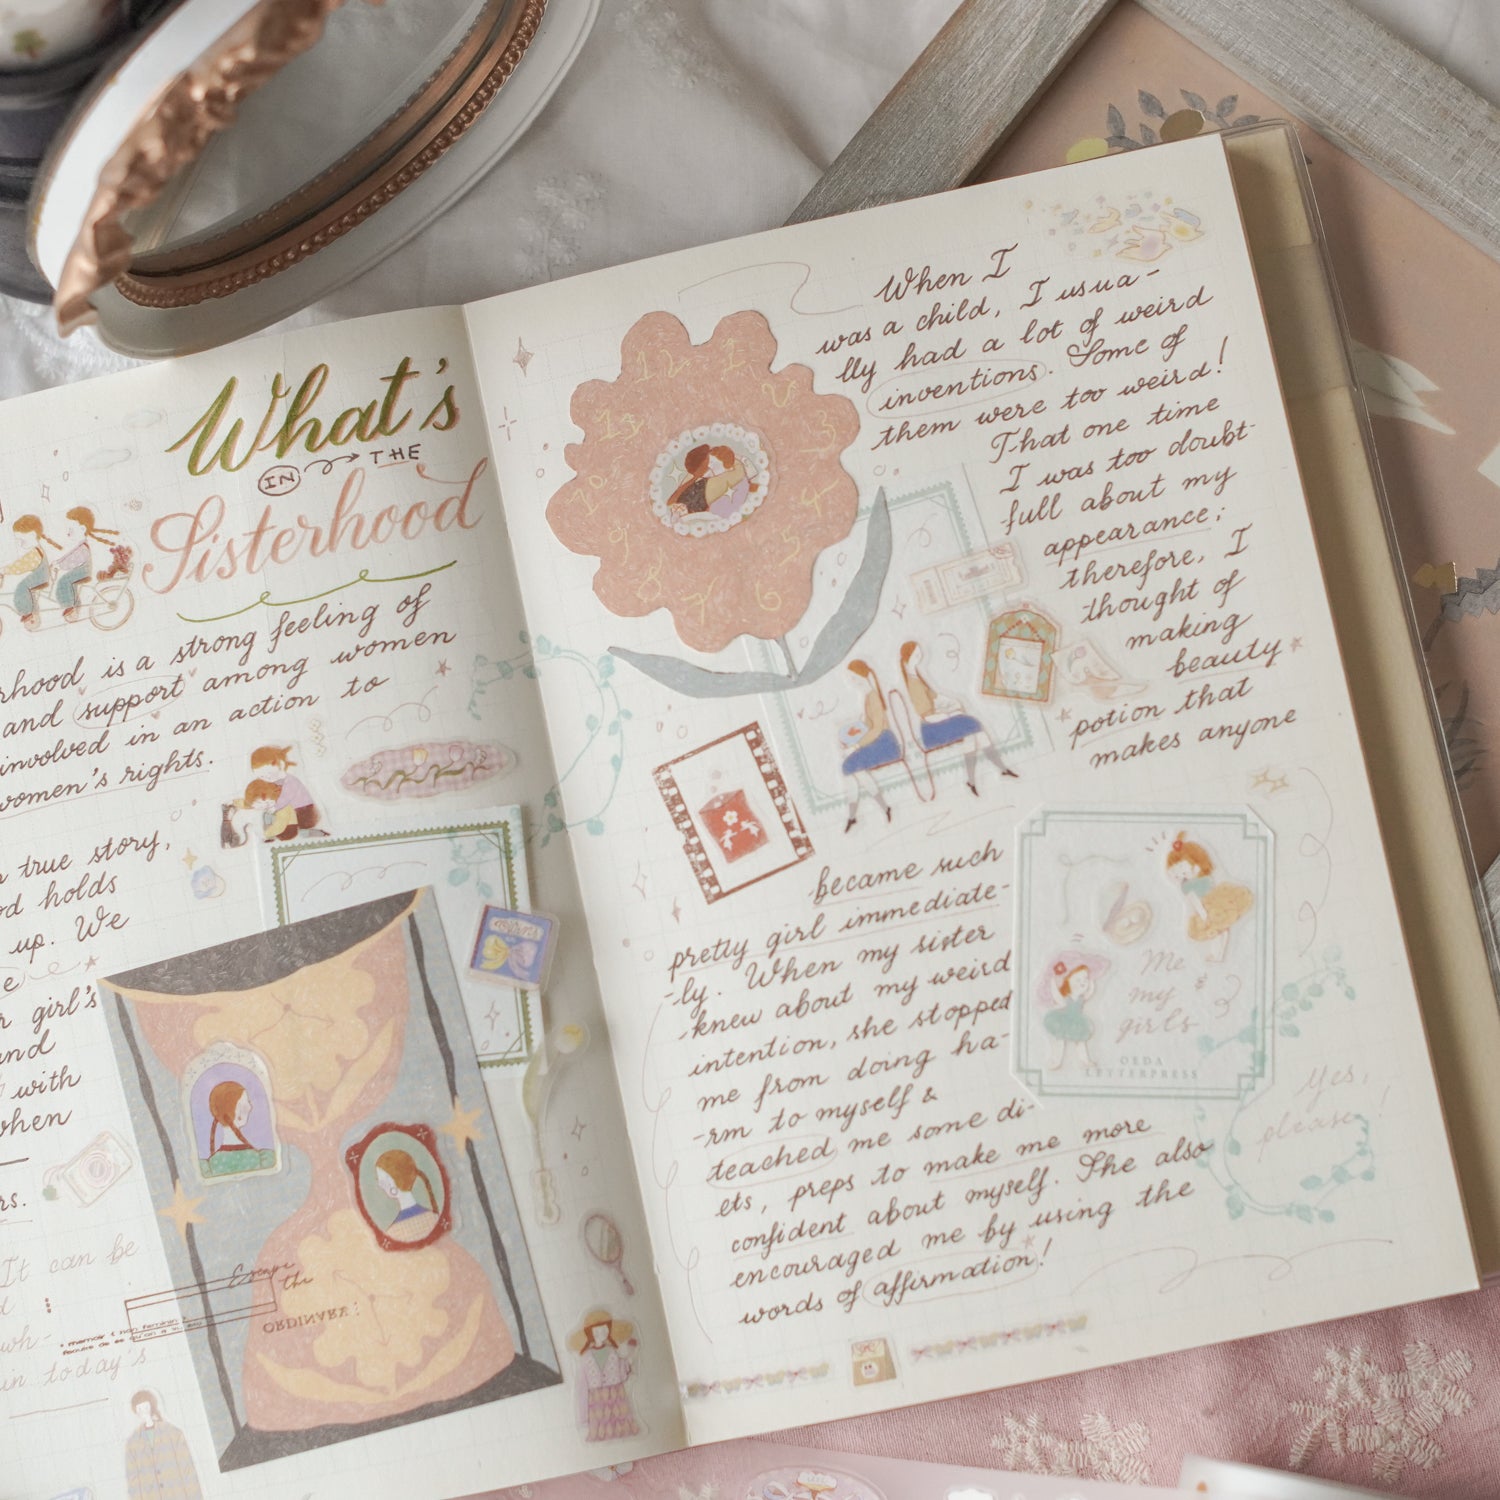 What's
IN THE
Sisterhood
rhood is a strong feeling of
and support among women
involved in an action to
women's rights.
true story,
holds
up. We
girl's
and
with
when
rs.
It can be
in today's
Escape
the
ORDINARY:
When I
was a child, I usua-
lly had a lot of weird
inventions. Some of
them were too weird!
That one time
I was too doubt-
full about my
appearance;
therefore, I
thought of
making
beauty
potion that
makes anyone
became such
pretty girl immediate-
-ly. When my sister
knew about my weird
intention, she stopped
me from doing ha-
-rm to myself &
teached me some di-
ets, preps to make me more
confident about myself. She also
encouraged me by using the
words of affirmation!
12 1 2 3 4 5 6 7 8 9 10 11
Me &
my
girls
OEDA
LETTERPRESS
Yes,
please!